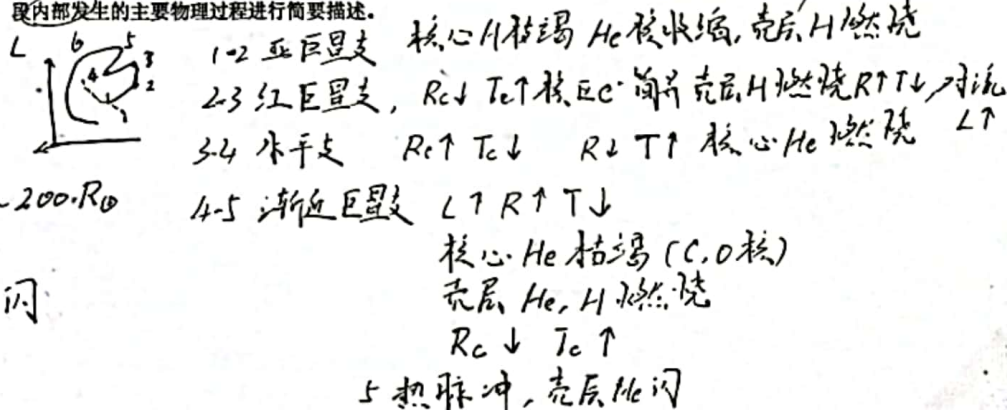 段内部发生的主要物理过程进行简要描述。
L 6 5 3 4 2 1
1-2 亚巨星支 核心H枯竭 He核收缩,壳层H燃烧
2-3 红巨星支, Rc↓ Tc↑ 核区e⁻简并 壳层H燃烧R↑T↓,对流
L↑
3-4 水平支 Rc↑ Tc↓ R↓ T↑ 核心He燃烧
~200.R⊕ 4-5 渐近巨星支 L↑ R↑ T↓
核心He枯竭(C,O核)
闪 壳层He,H燃烧
Rc↓ Tc↑
5 热脉冲,壳层He闪